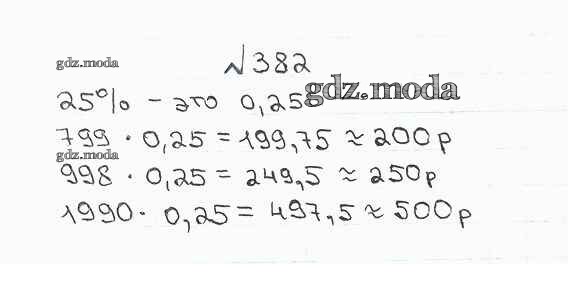 №382
gdz.moda
25% – это 0,25
gdz.moda
799 · 0,25 = 199,75 ≈ 200р
gdz.moda
998 · 0,25 = 249,5 ≈ 250р
1990 · 0,25 = 497,5 ≈ 500р